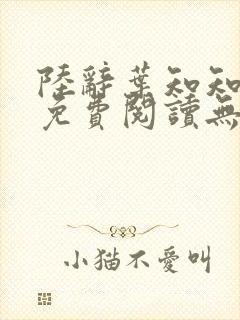 陸辭葉知知
免費閱讀無
小猫不愛叫